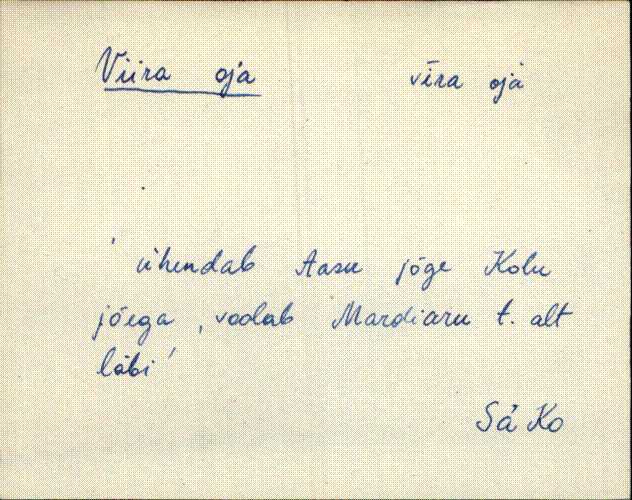 Viira oja vīra ojà
' ühendab Aasu jõge Kolu
jõega, voolab Mardiaru t. alt
läbi'
Sä Ko